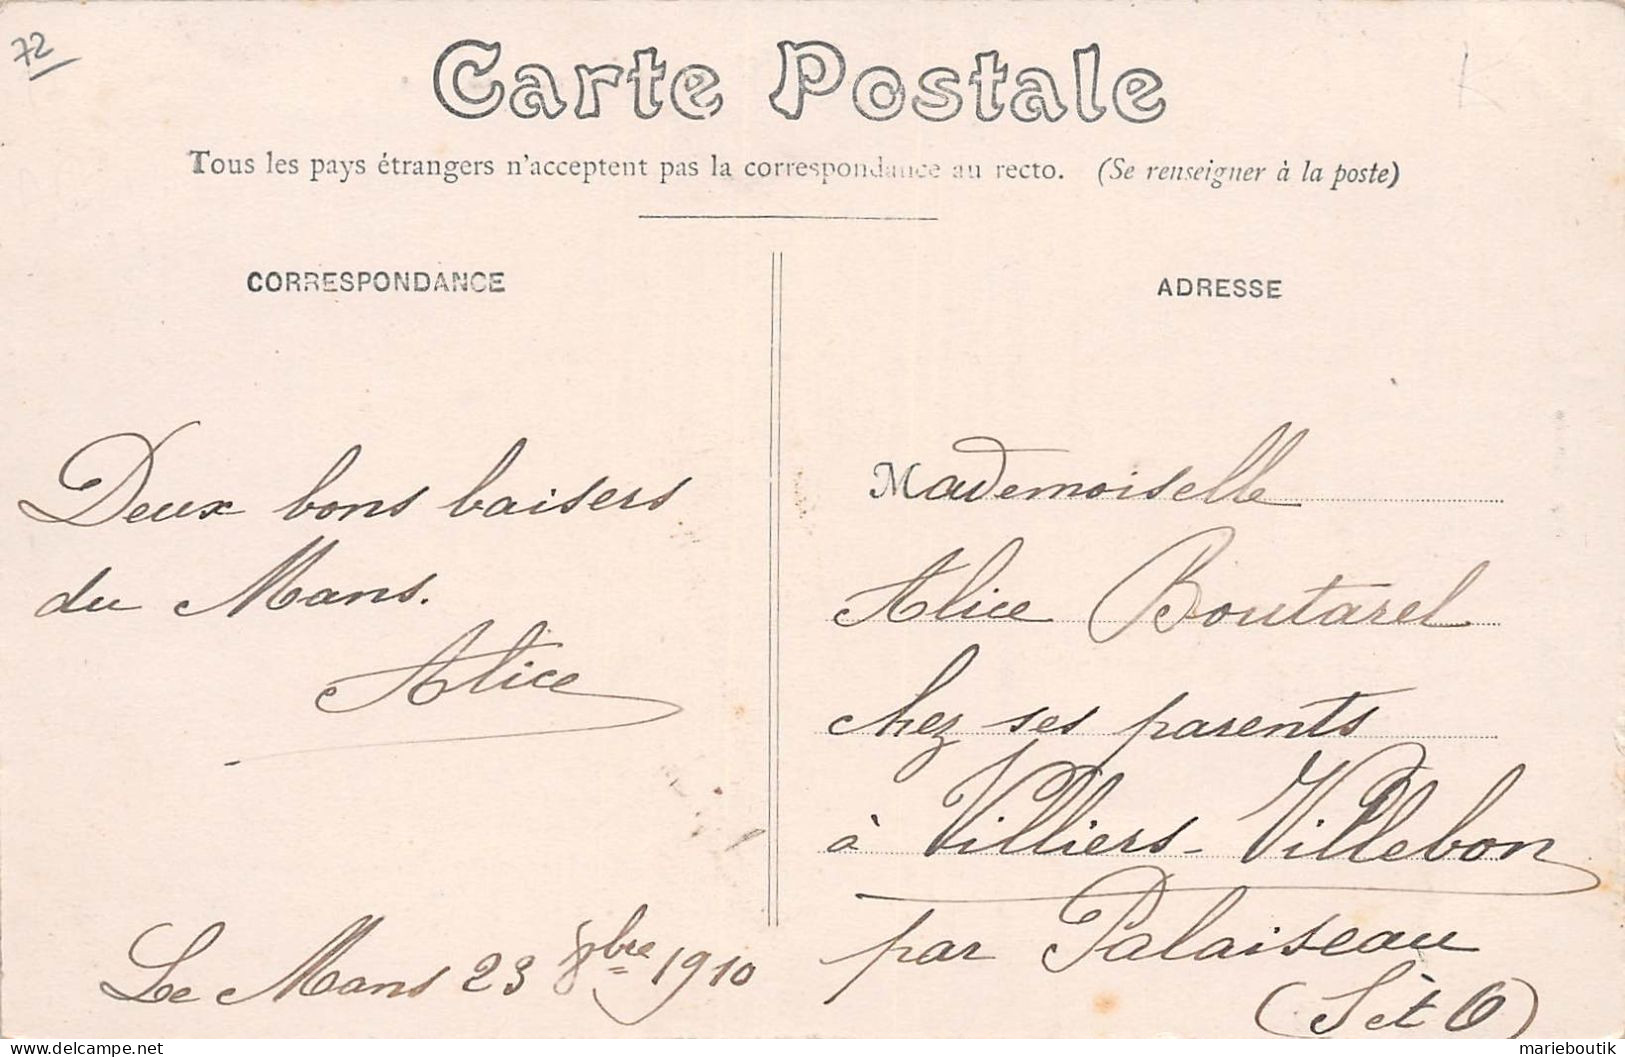 72
Carte Postale
K
Tous les pays étrangers n'acceptent pas la correspondance au recto. (Se renseigner à la poste)
CORRESPONDANCE
Deux bons baisers
du Mans.
Alice
Le Mans 23 8bre 1910
ADRESSE
Mademoiselle
Alice Boutarel
chez ses parents
à Villiers-Villebon
par Palaiseau
(S et O)
marieboutik